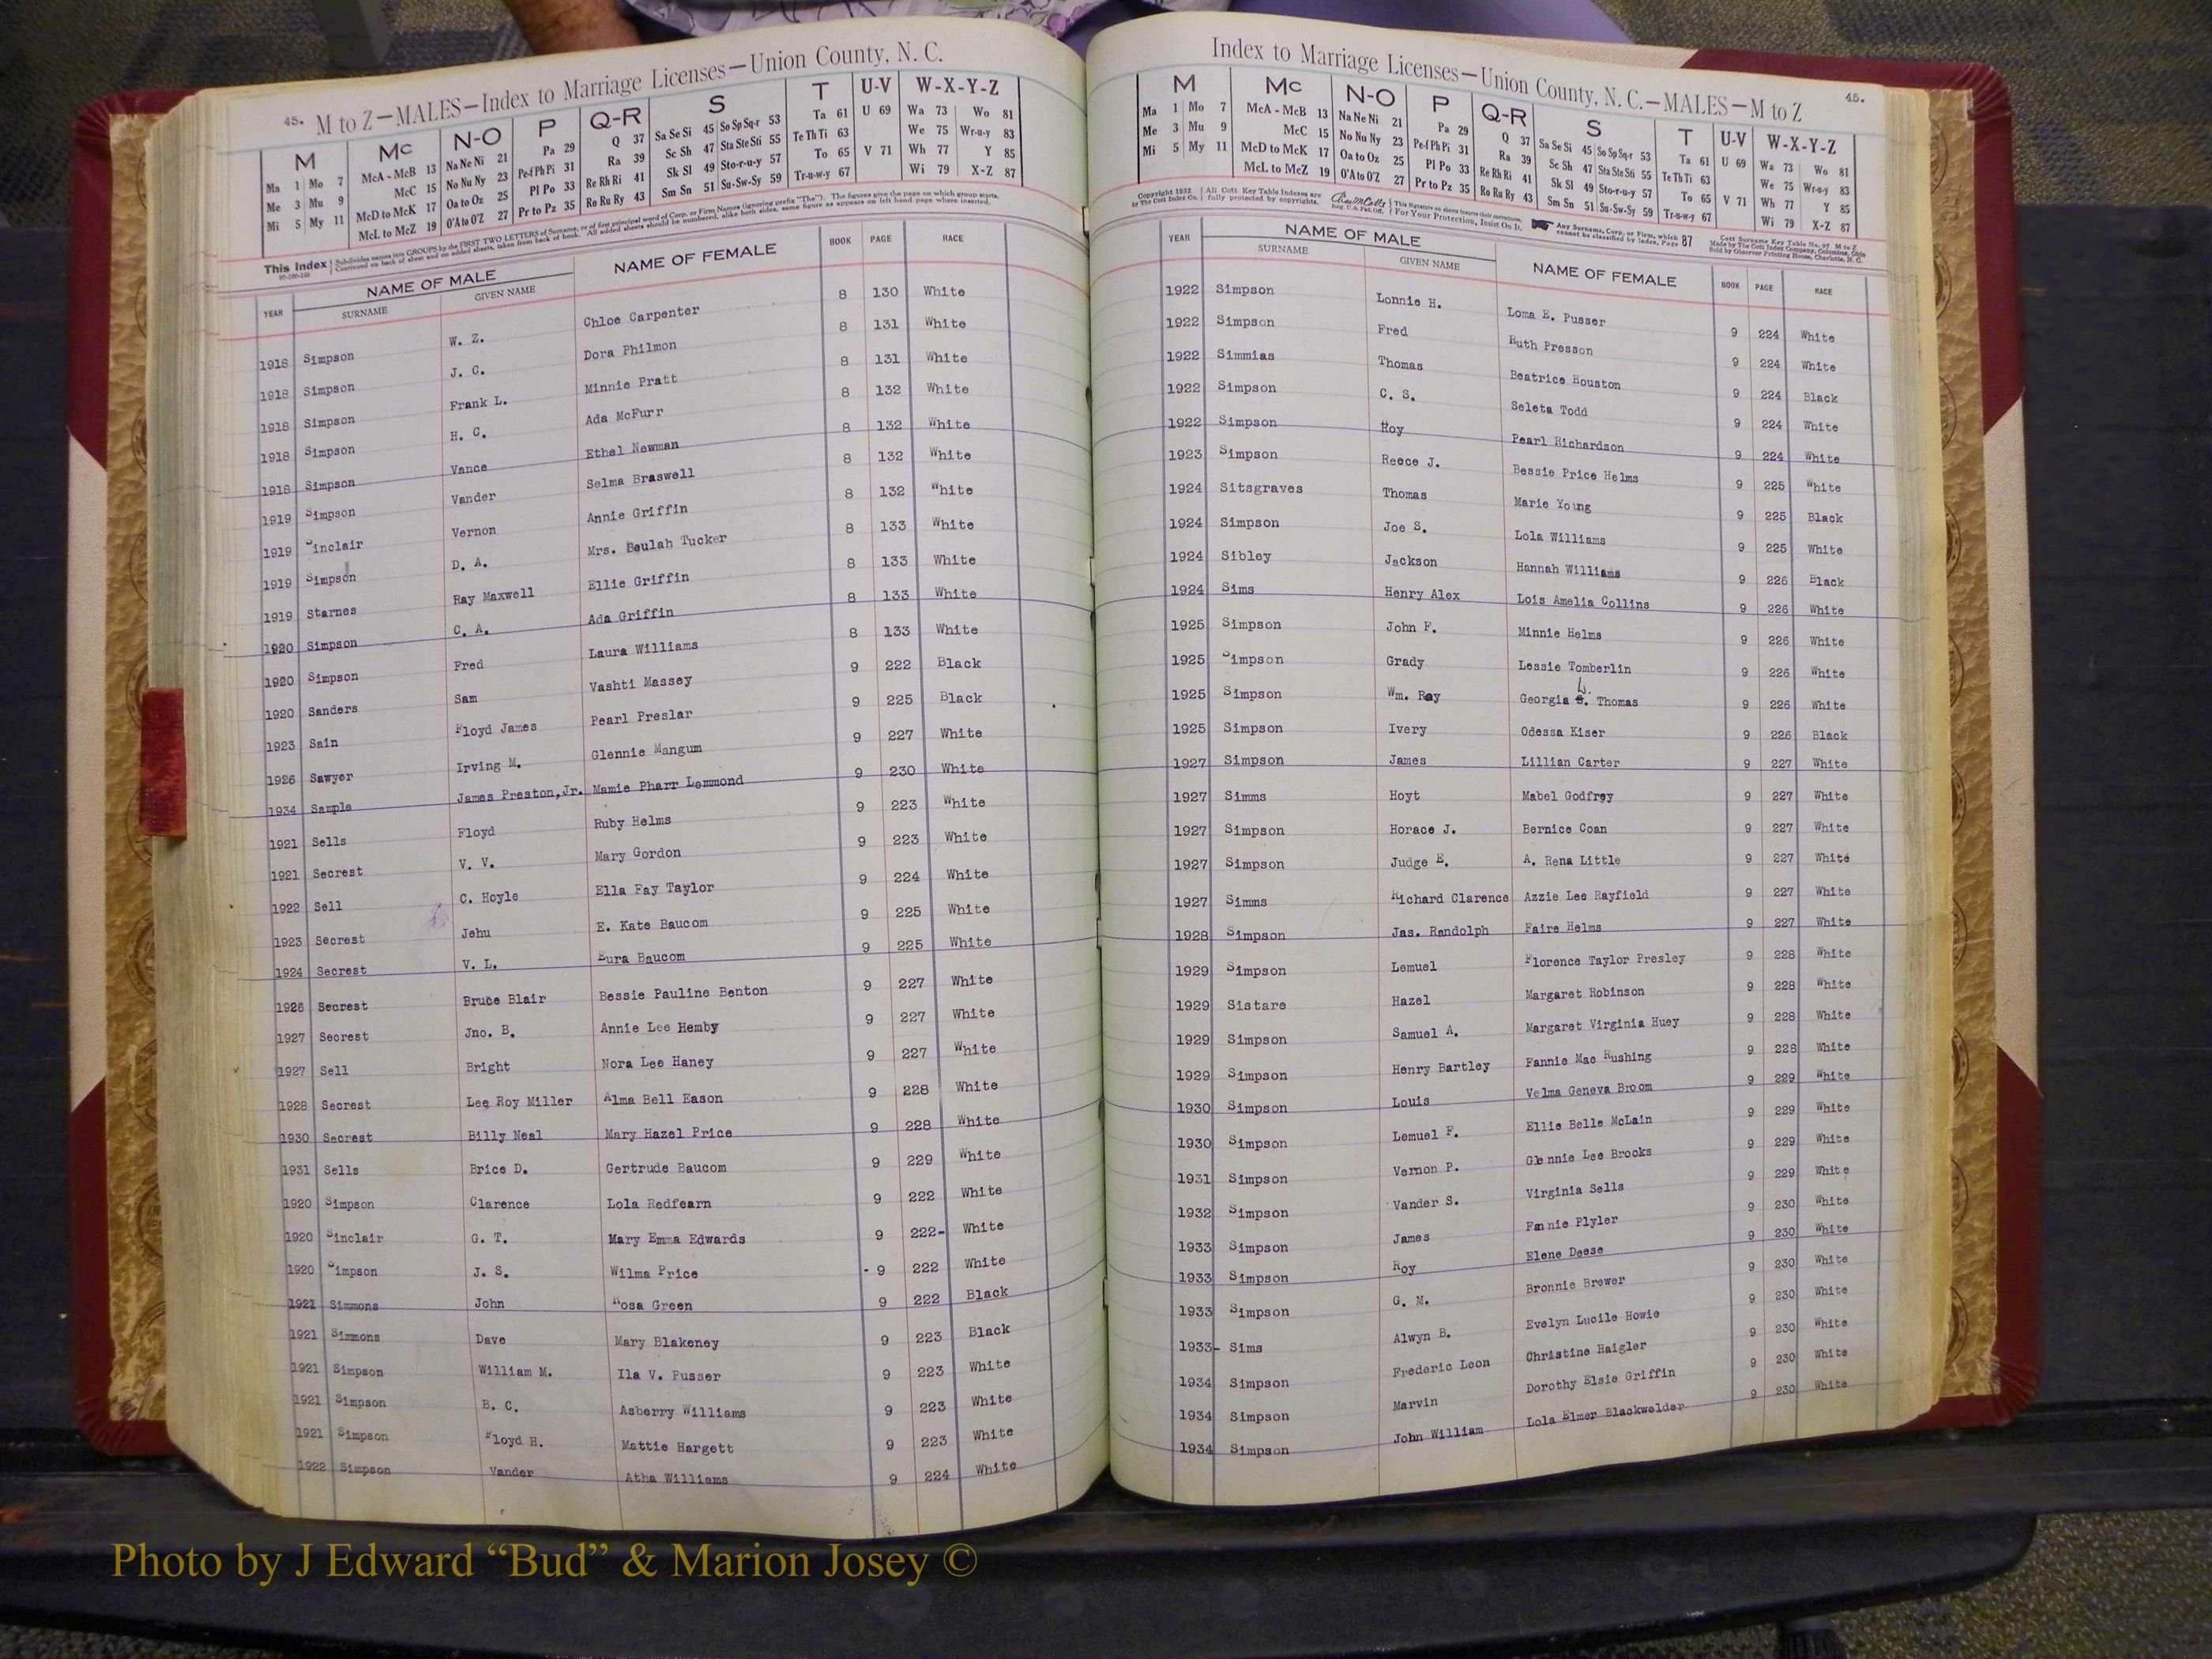 45. M to Z—MALES—Index to Marriage Licenses—Union County, N. C.
M Mc N-O P Q-R S T U-V W-X-Y-Z
Ma 1 Mo 7 McA - McB 13 Na Ne Ni 21 Pa 29 Q 37 Sa Se Si 45 So Sp Sq-r 53 Ta 61 U 69 Wa 73 Wo 81
Me 3 Mu 9 McC 15 No Nu Ny 23 Pe-f Ph Pi 31 Ra 39 Sc Sh 47 Sta Ste Sti 55 Te Th Ti 63 We 75 Wr-u-y 83
Mi 5 My 11 McD to McK 17 Oa to Oz 25 Pl Po 33 Re Rh Ri 41 Sk Sl 49 Sto-r-u-y 57 To 65 V 71 Wh 77 Y 85
McL to McZ 19 O'A to O'Z 27 Pr to Pz 35 Ro Ru Ry 43 Sm Sn 51 Su-Sw-Sy 59 Tr-u-w-y 67 Wi 79 X-Z 87
This Index Subdivides names into GROUPS by the FIRST TWO LETTERS of Surname, or of first principal word of Corp. or Firm Names (ignoring prefix "The"). The figures give the page on which group starts.
Continued on back of sheet and on added sheets, taken from back of book. All added sheets should be numbered, alike both sides, same figure as appears on left hand page where inserted.
YEAR NAME OF MALE NAME OF FEMALE BOOK PAGE RACE
SURNAME GIVEN NAME
1918 Simpson W. Z. Chloe Carpenter 8 130 White
1918 Simpson J. C. Dora Philmon 8 131 White
1918 Simpson Frank L. Minnie Pratt 8 131 White
1918 Simpson H. C. Ada McFurr 8 132 White
1918 Simpson Vance Ethel Newman 8 132 White
1919 Simpson Vander Selma Braswell 8 132 White
1919 Sinclair Vernon Annie Griffin 8 132 White
1919 Simpson D. A. Mrs. Beulah Tucker 8 133 White
1919 Starnes Ray Maxwell Ellie Griffin 8 133 White
1920 Simpson C. A. Ada Griffin 8 133 White
1920 Simpson Fred Laura Williams 8 133 White
1920 Sanders Sam Vashti Massey 9 222 Black
1923 Sain Floyd James Pearl Preslar 9 225 Black
1926 Sawyer Irving M. Glennie Mangum 9 227 White
1934 Sample James Preston, Jr. Mamie Pharr Lemmond 9 230 White
1921 Sells Floyd Ruby Helms 9 223 White
1921 Secrest V. V. Mary Gordon 9 223 White
1922 Sell C. Hoyle Ella Fay Taylor 9 224 White
1923 Secrest Jehu E. Kate Baucom 9 225 White
1924 Secrest V. L. Eura Baucom 9 225 White
1926 Secrest Bruce Blair Bessie Pauline Benton 9 227 White
1927 Secrest Jno. B. Annie Lee Hemby 9 227 White
1927 Sell Bright Nora Lee Haney 9 227 White
1928 Secrest Lee Roy Miller Alma Bell Eason 9 228 White
1930 Secrest Billy Neal Mary Hazel Price 9 228 White
1931 Sells Brice D. Gertrude Baucom 9 229 White
1920 Simpson Clarence Lola Redfearn 9 222 White
1920 Sinclair G. T. Mary Emma Edwards 9 222- White
1920 Simpson J. S. Wilma Price - 9 222 White
1921 Simmons John Rosa Green 9 222 Black
1921 Simmons Dave Mary Blakeney 9 223 Black
1921 Simpson William M. Ila V. Pusser 9 223 White
1921 Simpson B. C. Asberry Williams 9 223 White
1921 Simpson Floyd H. Mattie Hargett 9 223 White
1922 Simpson Vander Atha Williams 9 224 White
Index to Marriage Licenses—Union County, N. C.—MALES—M to Z 45.
M Mc N-O P Q-R S T U-V W-X-Y-Z
Ma 1 Mo 7 McA - McB 13 Na Ne Ni 21 Pa 29 Q 37 Sa Se Si 45 So Sp Sq-r 53 Ta 61 U 69 Wa 73 Wo 81
Me 3 Mu 9 McC 15 No Nu Ny 23 Pe-f Ph Pi 31 Ra 39 Sc Sh 47 Sta Ste Sti 55 Te Th Ti 63 We 75 Wr-u-y 83
Mi 5 My 11 McD to McK 17 Oa to Oz 25 Pl Po 33 Re Rh Ri 41 Sk Sl 49 Sto-r-u-y 57 To 65 V 71 Wh 77 Y 85
McL to McZ 19 O'A to O'Z 27 Pr to Pz 35 Ro Ru Ry 43 Sm Sn 51 Su-Sw-Sy 59 Tr-u-w-y 67 Wi 79 X-Z 87
Copyright 1932 by The Cott Index Co. All Cott Key Table Indexes are fully protected by copyrights. Reg. U.S. Pat. Off. This Signature on sheets insures their correctness. For Your Protection, Insist On It. Any Surname, Corp. or Firm, which cannot be classified by Index, Page 87
Cott Surname Key Table No. 97 M to Z
Made by The Cott Index Company, Columbus, Ohio
Sold by Observer Printing House, Charlotte, N. C.
YEAR NAME OF MALE NAME OF FEMALE BOOK PAGE RACE
SURNAME GIVEN NAME
1922 Simpson Lonnie H. Loma E. Pusser 9 224 White
1922 Simpson Fred Ruth Presson 9 224 White
1922 Simmias Thomas Beatrice Houston 9 224 Black
1922 Simpson C. S. Seleta Todd 9 224 White
1922 Simpson Roy Pearl Richardson 9 224 White
1923 Simpson Reece J. Bessie Price Helms 9 225 White
1924 Sitsgraves Thomas Marie Young 9 225 Black
1924 Simpson Joe S. Lola Williams 9 225 White
1924 Sibley Jackson Hannah Williams 9 226 Black
1924 Sims Henry Alex Lois Amelia Collins 9 226 White
1925 Simpson John F. Minnie Helms 9 226 White
1925 Simpson Grady Lessie Tomberlin 9 226 White
1925 Simpson Wm. Ray Georgia L. Thomas 9 226 White
1925 Simpson Ivery Odessa Kiser 9 226 Black
1927 Simpson James Lillian Carter 9 227 White
1927 Simms Hoyt Mabel Godfrey 9 227 White
1927 Simpson Horace J. Bernice Coan 9 227 White
1927 Simpson Judge E. A. Rena Little 9 227 White
1927 Simms Richard Clarence Azzie Lee Rayfield 9 227 White
1928 Simpson Jas. Randolph Faire Helms 9 227 White
1929 Simpson Lemuel Florence Taylor Presley 9 228 White
1929 Sistare Hazel Margaret Robinson 9 228 White
1929 Simpson Samuel A. Margaret Virginia Huey 9 228 White
1929 Simpson Henry Bartley Fannie Mae Rushing 9 228 White
1930 Simpson Louis Velma Geneva Broom 9 229 White
1930 Simpson Lemuel F. Ellie Belle McLain 9 229 White
1931 Simpson Vernon P. Glennie Lee Brooks 9 229 White
1932 Simpson Vander S. Virginia Sells 9 229 White
1933 Simpson James Fannie Plyler 9 230 White
1933 Simpson Roy Elene Deese 9 230 White
1933 Simpson G. M. Bronnie Brewer 9 230 White
1933- Sims Alwyn B. Evelyn Lucile Howie 9 230 White
1934 Simpson Frederic Leon Christine Haigler 9 230 White
1934 Simpson Marvin Dorothy Elsie Griffin 9 230 White
1934 Simpson John William Lola Elmer Blackwelder 9 230 White
Photo by J Edward “Bud” & Marion Josey ©